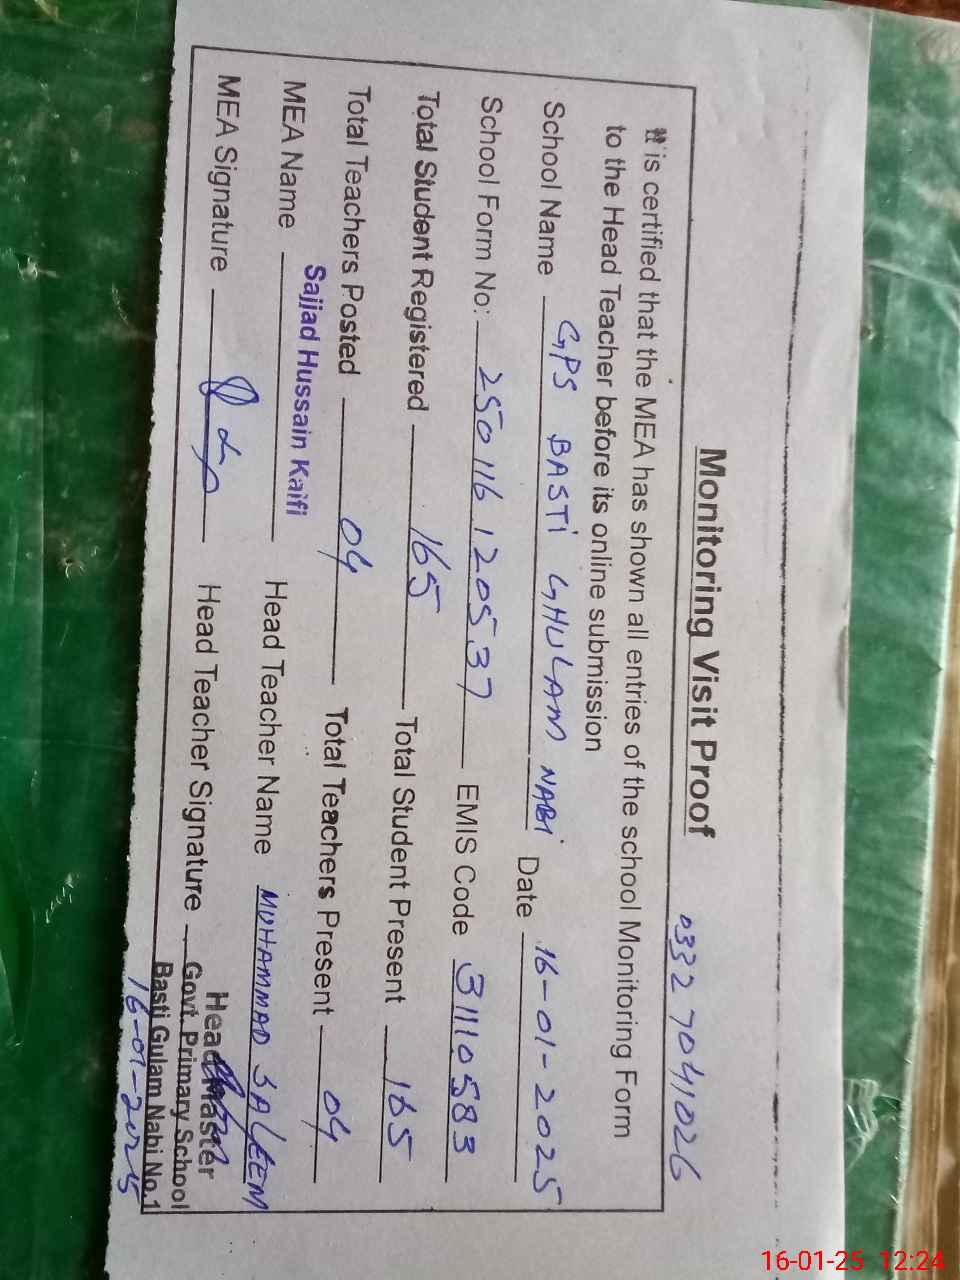 Monitoring Visit Proof 0332 7041026
It is certified that the MEA has shown all entries of the school Monitoring Form
to the Head Teacher before its online submission
School Name GPS BASTi GHULAM NABi Date 16-01-2025
School Form No: 250116120537 EMIS Code 31110583
Total Student Registered 165 Total Student Present 165
Total Teachers Posted 04 Total Teachers Present 04
MEA Name Sajjad Hussain Kaifi Head Teacher Name MUHAMMAD SALEEM
MEA Signature Head Teacher Signature
Head Master
Govt. Primary School
Basti Gulam Nabi No.1
16-01-2025
16-01-25 12:24